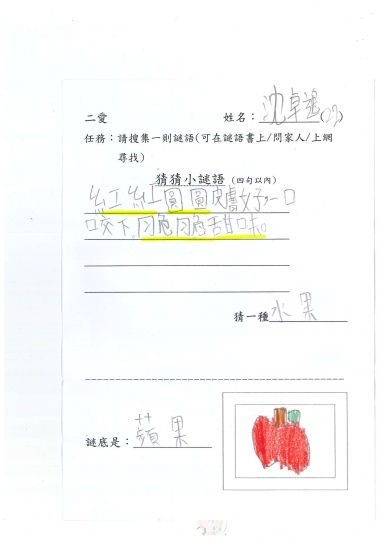 二愛 姓名：沈卓逸(09)
任務：請搜集一則謎語(可在謎語書上/問家人/上網
尋找)
猜猜小謎語 (四句以內)
紅紅圓圓皮膚好，一口
咬下，脆脆甜味。
猜一種水果
謎底是：蘋果